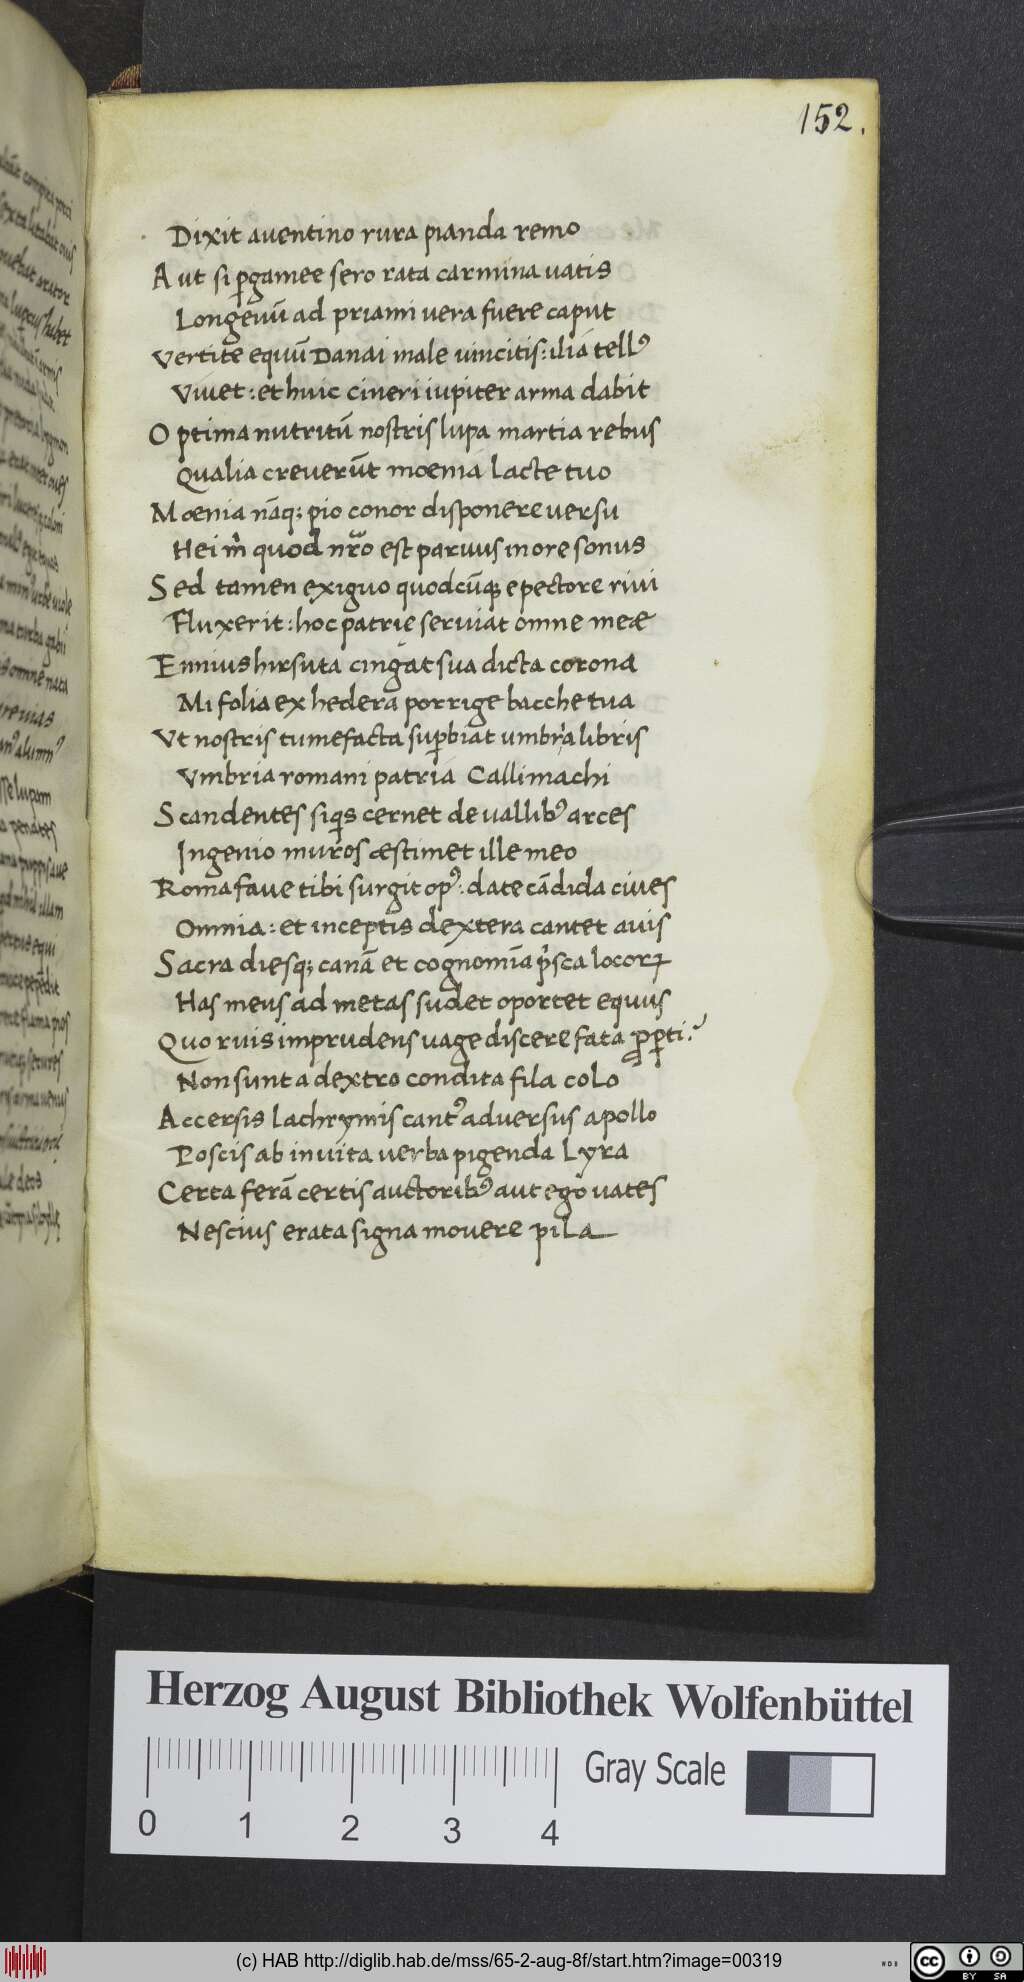 152.
Dixit auentino rura pianda remo
Aut si ꝑgamee sero rata carmina uatis
Longeuū ad priami uera fuere caput
Vertite equū Danai male uincitis: ilia tellꝰ
Viuet: et huic cineri iupiter arma dabit
Optima nutritū nostris lupa martia rebus
Qualia creuerūt moenia lacte tuo
Mœnia nāqꝫ pio conor disponere uersu
Hei m̊ quod nr̄o est paruus in ore sonus
Sed tamen exiguo quodcūqꝫ e pectore riui
Fluxerit: hoc patrie seruiat omne meæ
Ennius hirsuta cingat sua dicta corona
Mi folia ex hedera porrige bacche tua
Vt nostris tumefacta suꝑbiat umbria libris
Vmbria romani patria Callimachi
Scandentes siqͥs cernet de uallibꝰ arces
Ingenio muros æstimet ille meo
Roma faue tibi surgit opꝰ: date cādida ciues
Omnia: et inceptis dextera cantet auis
Sacra diesqꝫ canā et cognomīa pͥsca locoꝝ
Has meus ad metas sudet oportet equus
Quo ruis imprudens uage discere fata ꝓꝑti?
Non sunt a dextro condita fila colo
Accersis lachrymis cantꝰ aduersus apollo
Poscis ab inuita uerba pigenda Lyra
Certa ferā certis auctoribꝰ aut ego uates
Nescius erata signa mouere pila
Herzog August Bibliothek Wolfenbüttel
Gray Scale
0 1 2 3 4
(c) HAB http://diglib.hab.de/mss/65-2-aug-8f/start.htm?image=00319
cc BY SA